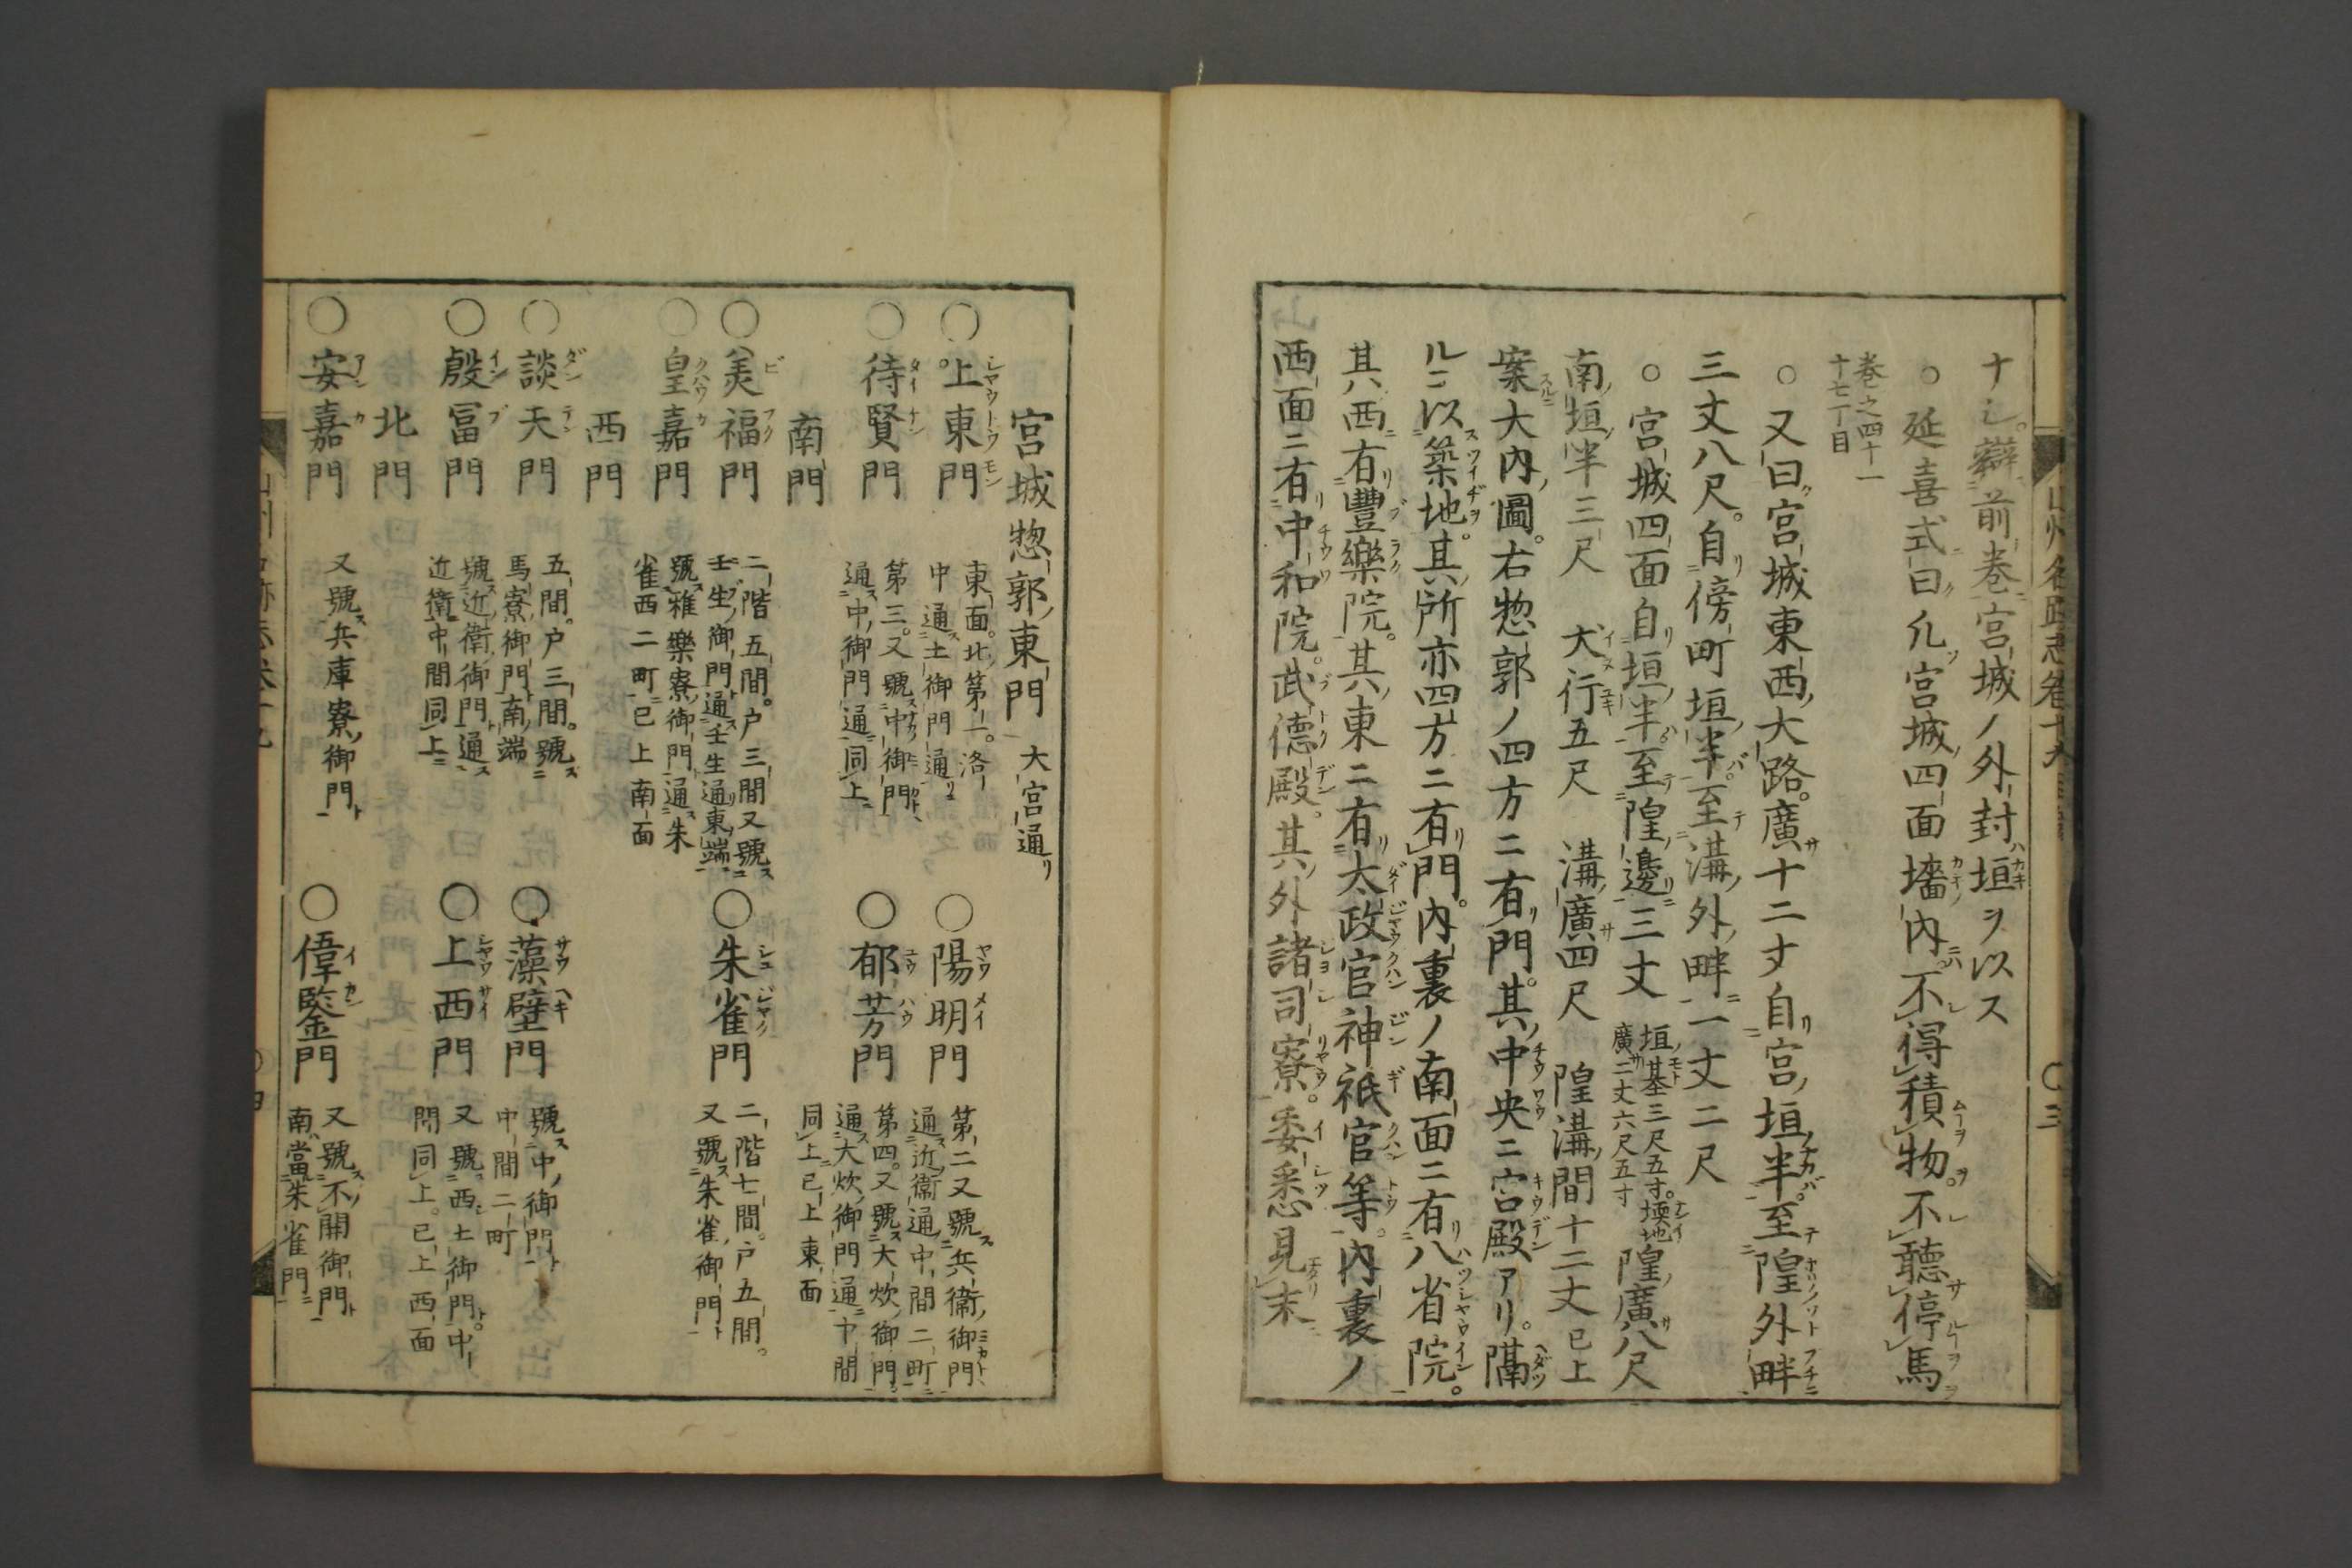 ナシ。辯前卷宮城ノ外封垣ヲ以ス
○延喜式曰凡宮城四面墻内不得積物。不聽停馬
卷之四十一
十七丁目
○又曰宮城東西大路。廣十二丈自宮垣半至隍外畔
三丈八尺。自傍町垣半至溝外畔一丈二尺
○宮城四面自垣半至隍邊三丈 垣基三尺五寸。壖地廣二丈六尺五寸 隍廣八尺
南垣半三尺 犬行五尺 溝廣四尺 隍溝間十二丈已上
案大内圖。右惣郭ノ四方ニ有門。其中央ニ宮殿アリ。隔
ルニ以築地。其所亦四方ニ有門。内裏ノ南面ニ有八省院。
其西有豐樂院。其東ニ有太政官神祇官等。内裏ノ
西面ニ有中和院。武德殿。其外諸司寮。委悉見末
宮城惣郭東門 大宮通リ
○上東門 東面。北第一。洛中通土御門通リ
○陽明門 第二又號兵衛御門通近衛通中間二町
○待賢門 第三。又號中御門通中御門通同上
○郁芳門 第四。又號大炊御門。通大炊御門通中間同上已上東面
南門
○美福門 二階五間。戸三間又號壬生御門通壬生通東端
○朱雀門 二階七間。戸五間。又號朱雀御門
○皇嘉門 號雅樂寮御門通朱雀西二町已上南面
西門
○談天門 五間。戸三間。號馬寮御門南端
○藻壁門 號中御門中間二町
○殷冨門 號近衛御門通近衛中間同上
○上西門 又號西土御門。中間同上。已上西面
北門
○安嘉門 又號兵庫寮御門
○偉鑒門 又號不開御門南當朱雀門